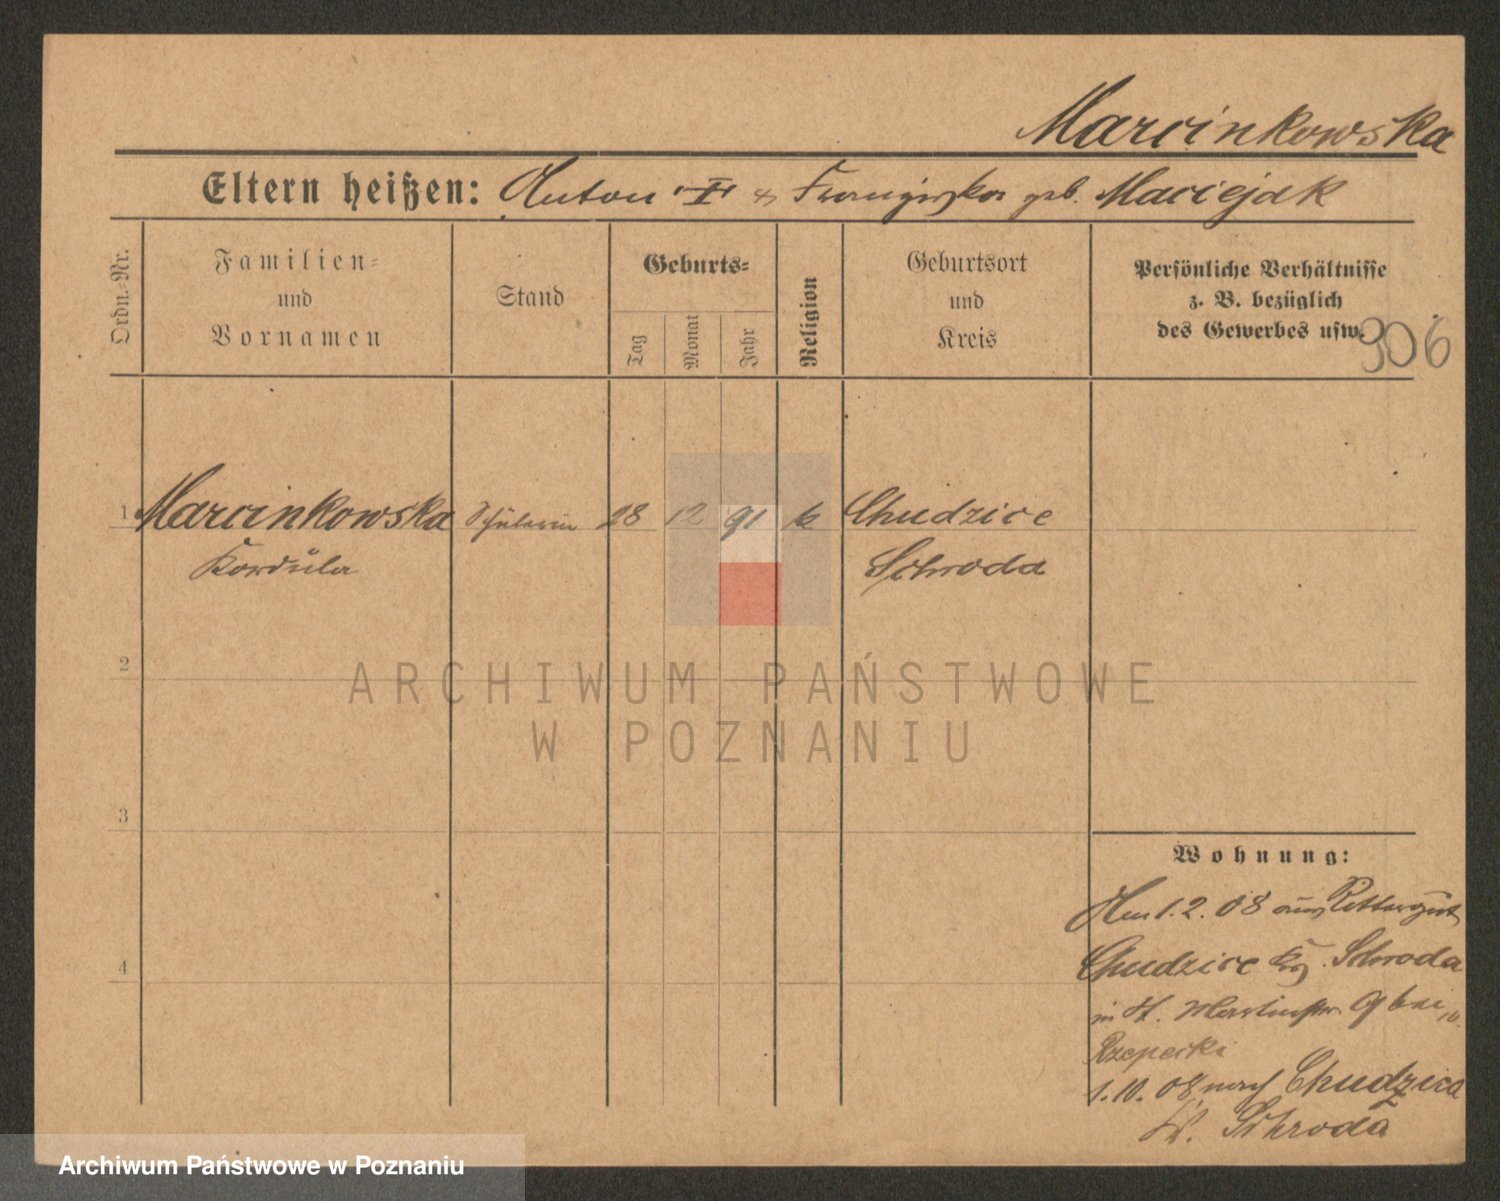 Marcinkowska
Eltern heißen: Anton II & Franziska geb. Maciejak
Ordn.-Nr.
Familien-
und
Vornamen
Stand
Geburts-
Tag
Monat
Jahr
Religion
Geburtsort
und
Kreis
Persönliche Verhältnisse
z. B. bezüglich
des Gewerbes usw.
306
1 Marcinkowska Schülerin 28 12 91 k Chudzice
Kordula Schroda
2
ARCHIWUM PAŃSTWOWE
W POZNANIU
3
Wohnung:
1.2.08 aus Rittergut
4 Chudzice Schroda
in St. Martinstr. 9 bei
Rzepecki
1.10.08 nach Chudzice
Schroda
Archiwum Państwowe w Poznaniu